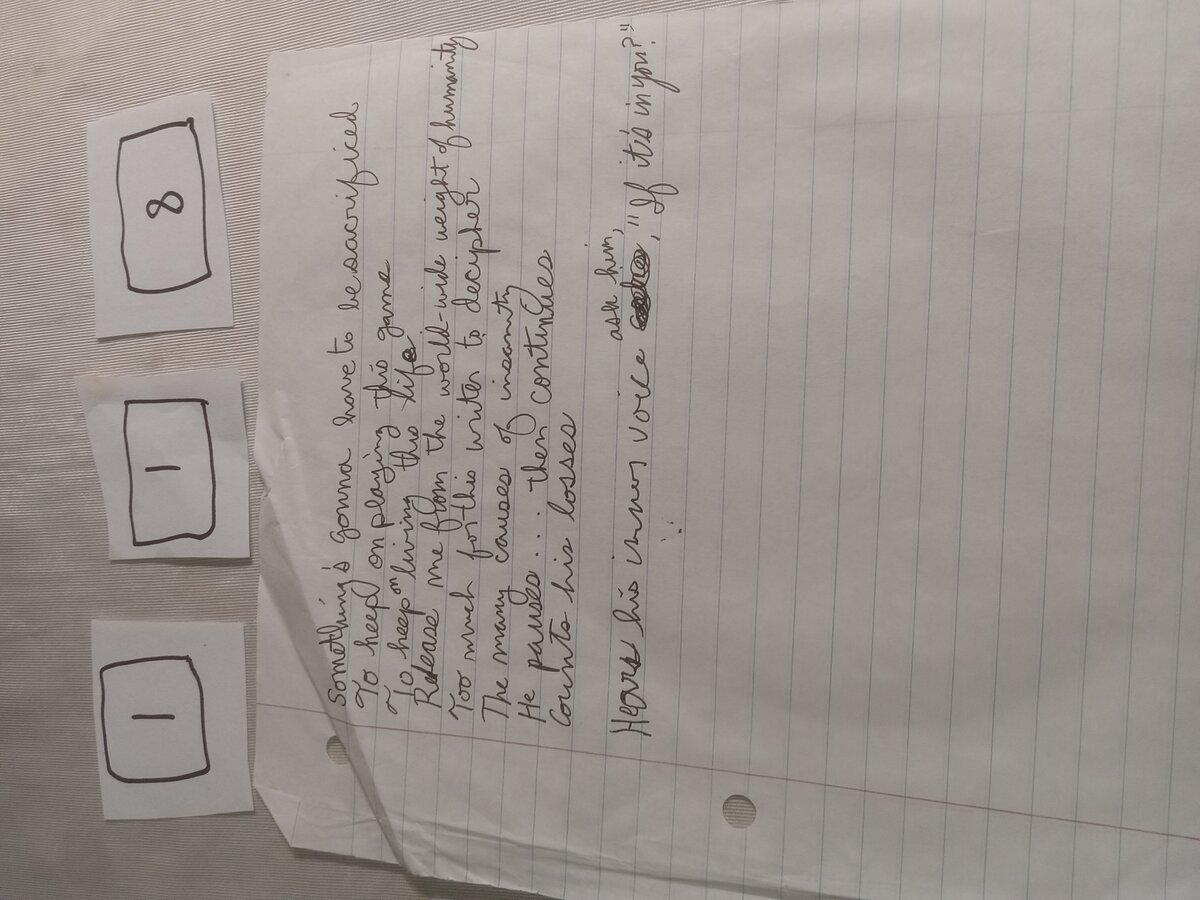 1 1 8
Something's gonna have to be sacrificed
To keep on playing this game
To keep on living this life
Release me from the world-wide weight of humanity
Too much for this writer to decipher
The many causes of insanity
He pauses... then continues
Counts his losses
Hears his inner voice ask him, "If it's in you?"